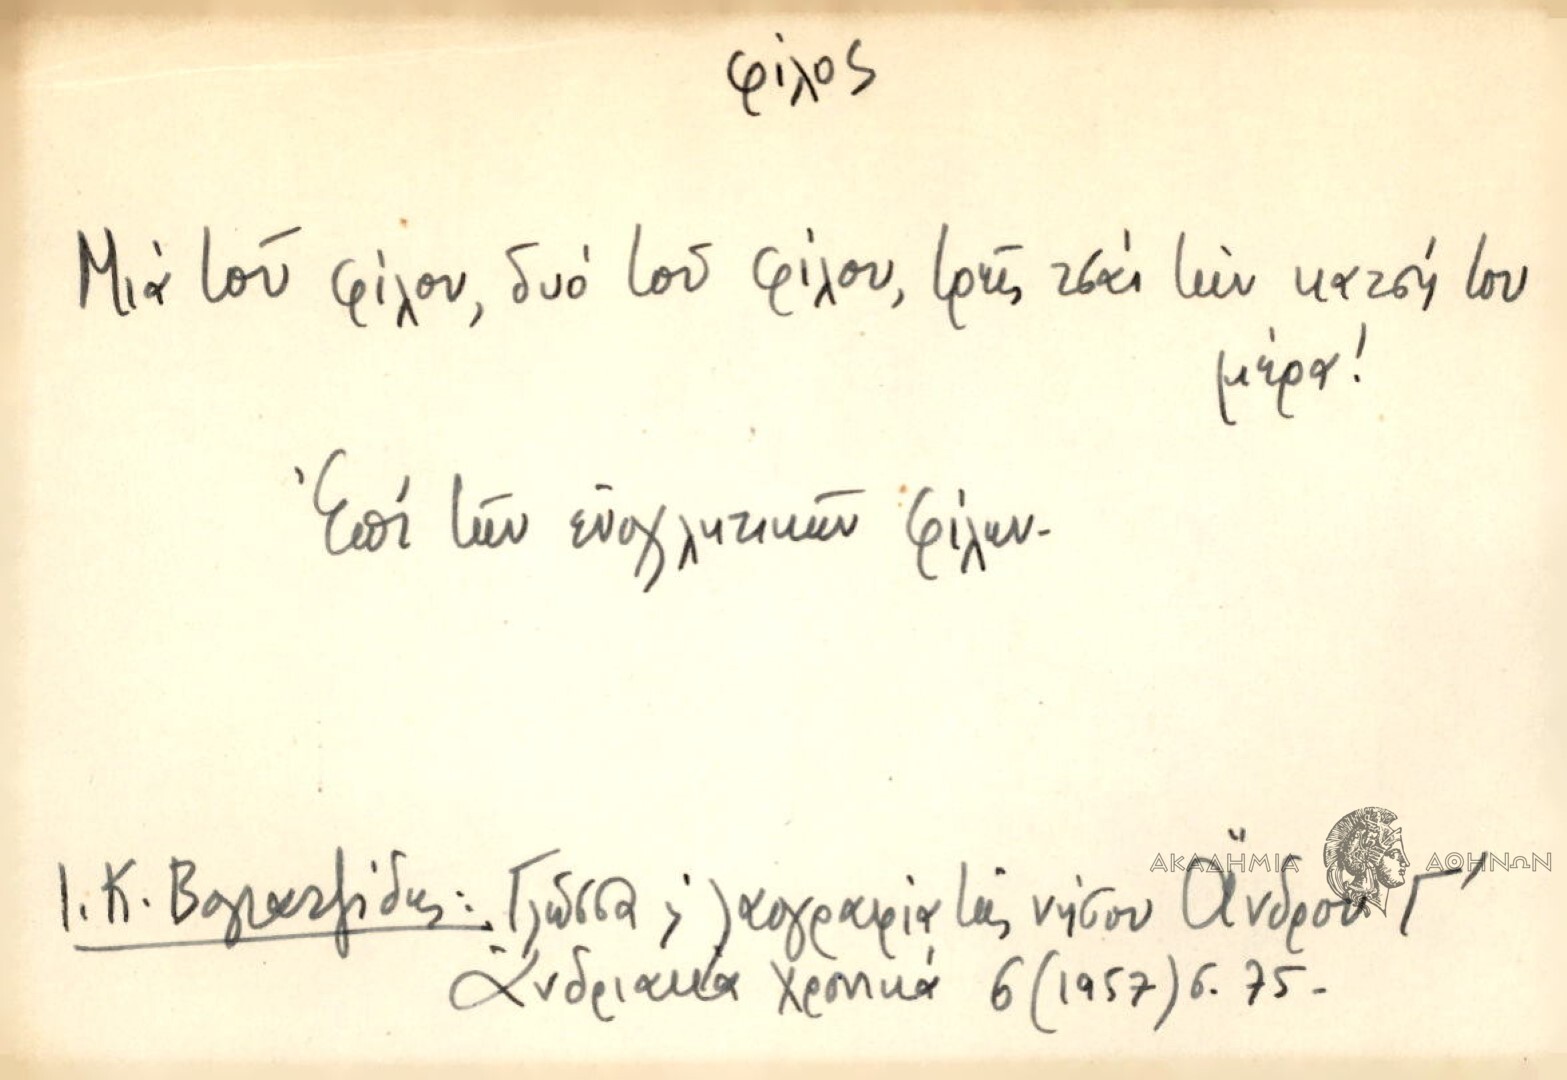 φίλος
Μιὰ τοῦ φίλου, δυό τοῦ φίλου, τρεῖς τσαὶ τὴν κατσή του
μέρα!
Ἐπί τῶν ἐνοχλητικῶν φίλων.
Ι. Κ. Βογιατζίδης: Γλῶσσα & λαογραφία τῆς νήσου Ἄνδρου Γ'
Ἀνδριακὰ Χρονικά 6 (1957) σ. 75.
ΑΚΑΔΗΜΙΑ ΑΘΗΝΩΝ